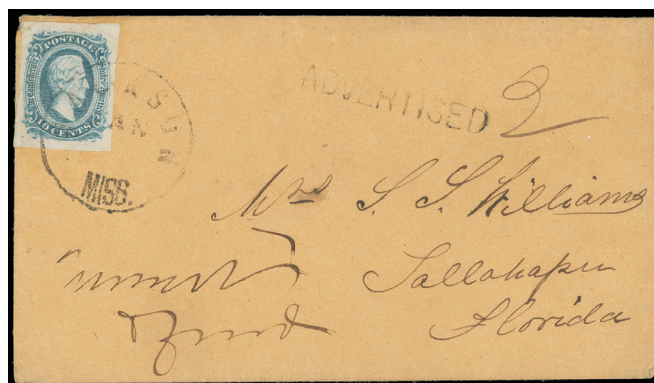 POSTAGE
10 CENTS
JACKSON
JAN
MISS.
ADVERTISED
2
Mrs S. S. Williams
Tallahassee
Florida